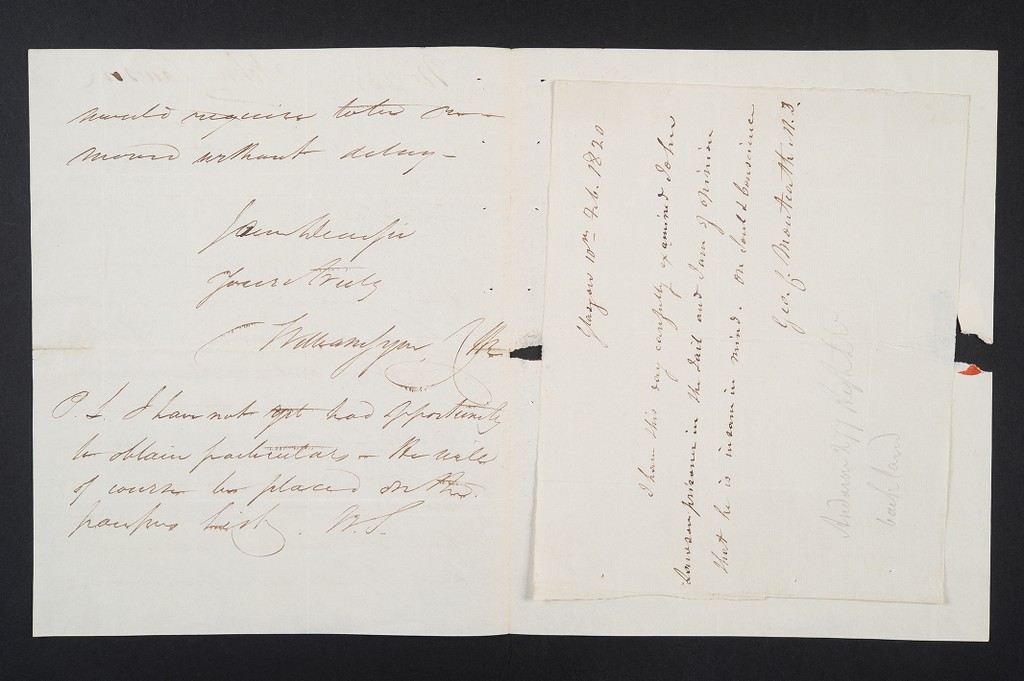 would require to be re-
moved without delay -
I am Dear Sir
Yours truly
William
P. S. I have not yet had opportunity
to obtain particulars - He will
of course be placed on the
paupers list. W. S.
Glasgow 10th Feb. 1820
I have this day carefully examined John
prisoner in the Jail and I am of opinion
that he is insane in mind. On Soul & Conscience
Geo. C. Monteath M.D.